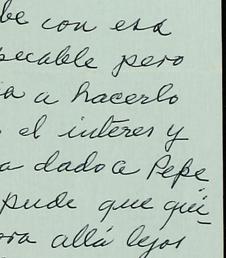 be con esa
pecable pero
a a hacerlo
el interes y
a dado a Pepe
pude que qui-
ora allá lejos